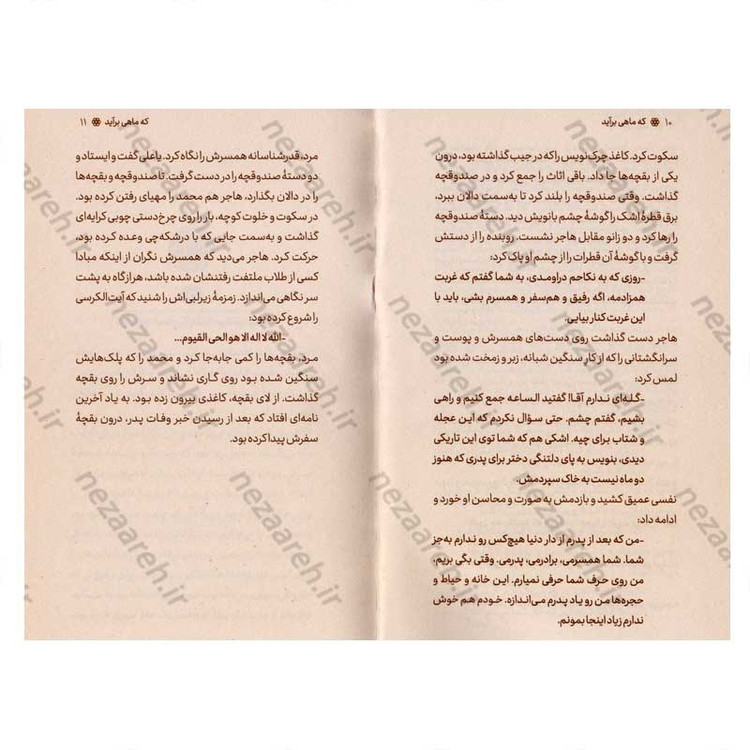 ۱۰ که ماهی برآید
سکوت کرد. کاغذ چرک‌نویس را که در جیب گذاشته بود، درون
یکی از بقچه‌ها جا داد. باقی اثاث را جمع کرد و در صندوقچه
گذاشت. وقتی صندوقچه را بلند کرد تا به‌سمت دالان ببرد،
برق قطرهٔ اشک را گوشهٔ چشم بانویش دید. دستهٔ صندوقچه
را رها کرد و دو زانو مقابل هاجر نشست. روبنده را از دستش
گرفت و با گوشهٔ آن قطرات را از چشم او پاک کرد:
-روزی که به نکاحم دراومدی، به شما گفتم که غربت
همزادمه، اگه رفیق و هم‌سفر و همسرم بشی، باید با
این غربت کنار بیایی.
هاجر دست گذاشت روی دست‌های همسرش و پوست و
سرانگشتانی را که از کار سنگین شبانه، زبر و زمخت شده بود
لمس کرد:
-گله‌ای ندارم آقا! گفتید الساعه جمع کنیم و راهی
بشیم، گفتم چشم. حتی سؤال نکردم که این عجله
و شتاب برای چیه. اشکی هم که شما توی این تاریکی
دیدی، بنویس به پای دلتنگی دختر برای پدری که هنوز
دو ماه نیست به خاک سپردمش.
نفسی عمیق کشید و بازدمش به صورت و محاسن او خورد و
ادامه داد:
-من که بعد از پدرم از دار دنیا هیچ‌کس رو ندارم به‌جز
شما. شما همسرمی، برادرمی، پدرمی. وقتی بگی بریم،
من روی حرف شما حرفی نمیارم. این خانه و حیاط و
حجره‌ها من رو یاد پدرم می‌اندازه. خودم هم خوش
ندارم زیاد اینجا بمونم.
که ماهی برآید ۱۱
مرد، قدرشناسانه همسرش را نگاه کرد. یاعلی گفت و ایستاد و
دو دستهٔ صندوقچه را در دست گرفت. تا صندوقچه و بقچه‌ها
را در دالان بگذارد، هاجر هم محمد را مهیای رفتن کرده بود.
در سکوت و خلوت کوچه، بار را روی چرخ‌دستی چوبی کرایه‌ای
گذاشت و به‌سمت جایی که با درشکه‌چی وعده کرده بود،
حرکت کرد. هاجر می‌دید که همسرش نگران از اینکه مبادا
کسی از طلاب ملتفت رفتنشان شده باشد، هرازگاه به پشت
سر نگاهی می‌اندازد. زمزمهٔ زیرلبی‌اش را شنید که آیت‌الکرسی
را شروع کرده بود:
-الله لا اله الا هو الحی القیوم...
مرد، بقچه‌ها را کمی جابه‌جا کرد و محمد را که پلک‌هایش
سنگین شده بود روی گاری نشاند و سرش را روی بقچه
گذاشت. از لای بقچه، کاغذی بیرون زده بود. به یاد آخرین
نامه‌ای افتاد که بعد از رسیدن خبر وفات پدر، درون بقچهٔ
سفرش پیدا کرده بود.
nezaareh.ir
nezaareh.ir
nezaareh.ir
nezaareh.ir
nezaareh.ir
nezaareh.ir
nezaareh.ir
nezaareh.ir
nezaareh.ir